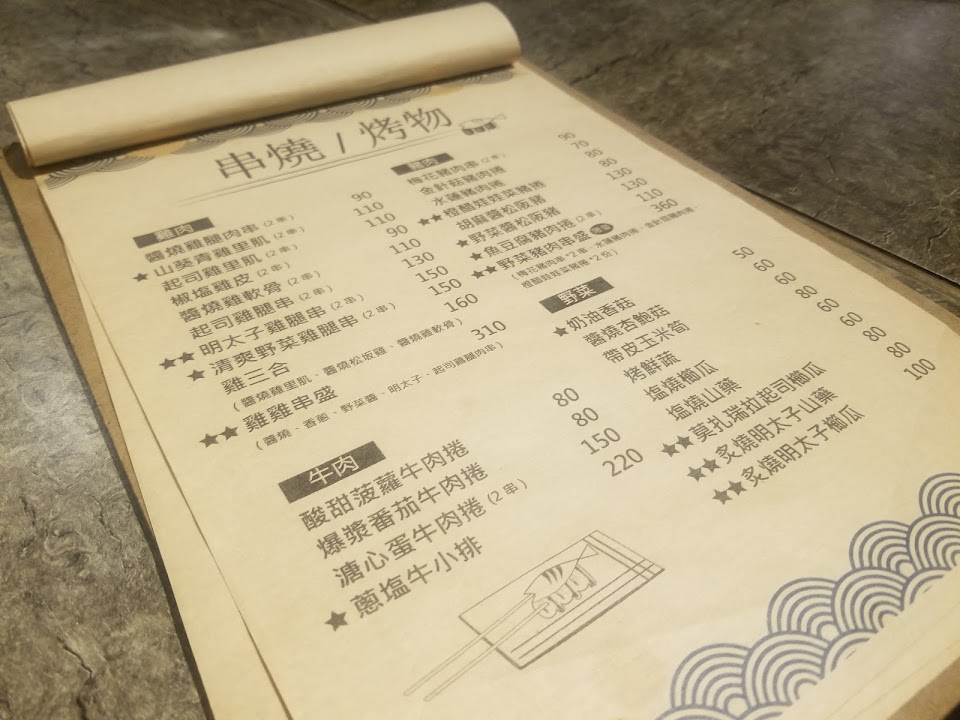 串燒 / 烤物
雞肉
醬燒雞腿肉串 (2串) 90
★山葵青雞里肌 (2串) 110
起司雞里肌 (2串) 110
椒塩雞皮 (2串) 90
醬燒雞軟骨 (2串) 110
起司雞腿串 (2串) 130
★★明太子雞腿串 (2串) 150
★清爽野菜雞腿串 (2串) 150
雞三合 160
(醬燒雞里肌、醬燒松坂雞、醬燒雞軟骨)
★★雞雞串盛 310
(醬燒、香蔥、野菜醬、明太子、起司雞腿肉串)
牛肉
酸甜菠蘿牛肉捲 80
爆漿番茄牛肉捲 80
溏心蛋牛肉捲 (2串) 150
★蔥塩牛小排 220
豬肉
梅花豬肉串 (2串) 90
金針菇豬肉捲 70
水蓮豬肉捲 80
★★橙醋娃娃菜豬捲 80
胡麻醬松阪豬 130
★野菜醬松阪豬 130
★魚豆腐豬肉捲 (2串) 110
★★野菜豬肉串盛 360
(梅花豬肉串*2串、水蓮豬肉捲、金針菇豬肉捲、
橙醋娃娃菜豬捲*2包)
野菜
★奶油香菇 50
醬燒杏鮑菇 60
帶皮玉米筍 60
烤鮮蔬 80
塩燒櫛瓜 60
塩燒山藥 60
★★莫扎瑞拉起司櫛瓜 80
★★炙燒明太子山藥 80
★★炙燒明太子櫛瓜 100